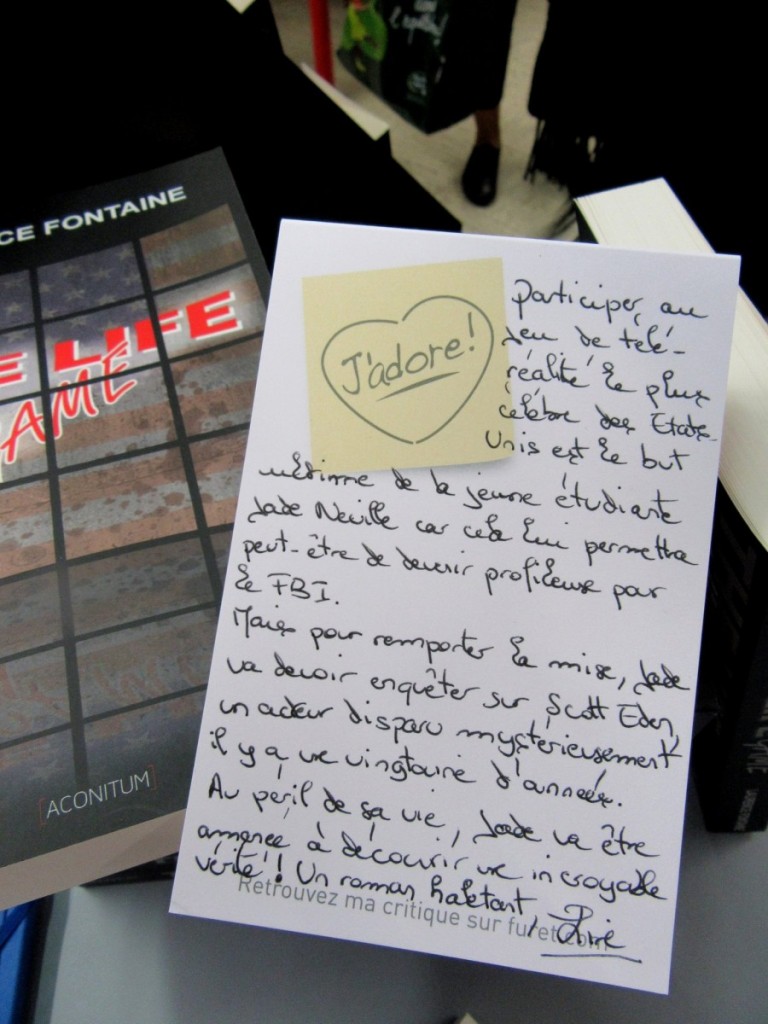 CE FONTAINE
E LIFE
AME
[ACONITUM]
J'adore!
Participer au
Jeu de télé-
réalité le plus
célèbre des Etats-
Unis est le but
ultime de la jeune étudiante
Jade Neville car cela lui permettra
peut-être de devenir profileuse pour
le FBI.
Mais pour remporter la mise, Jade
va devoir enquêter sur Scott Eden,
un acteur disparu mystérieusement
il y a une vingtaine d'années.
Au péril de sa vie, Jade va être
amenée à découvrir une incroyable
vérité! Un roman haletant,
Retrouvez ma critique sur furet.com